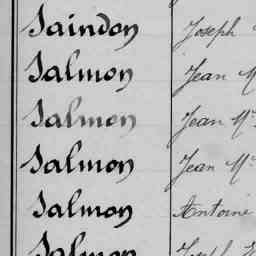 Saindon Joseph
Salmon Jean M
Salmon Jean Mie
Salmon Jean Mie
Salmon Antoine
Salmon Joseph